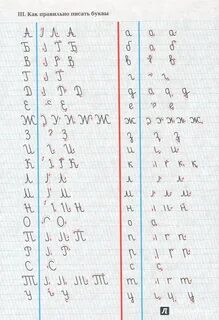 III. Как правильно писать буквы
А А а а
Б Б б б
В В в в
Г Г г г
Д Д д д
Е Е е е
Ж Ж ж ж
З З з з
И И и и
К К к к
Л Л л л
М М м м
Н Н н н
О О о о
П П п п
Р Р р р
С С с с
Т Т т т
У У у у